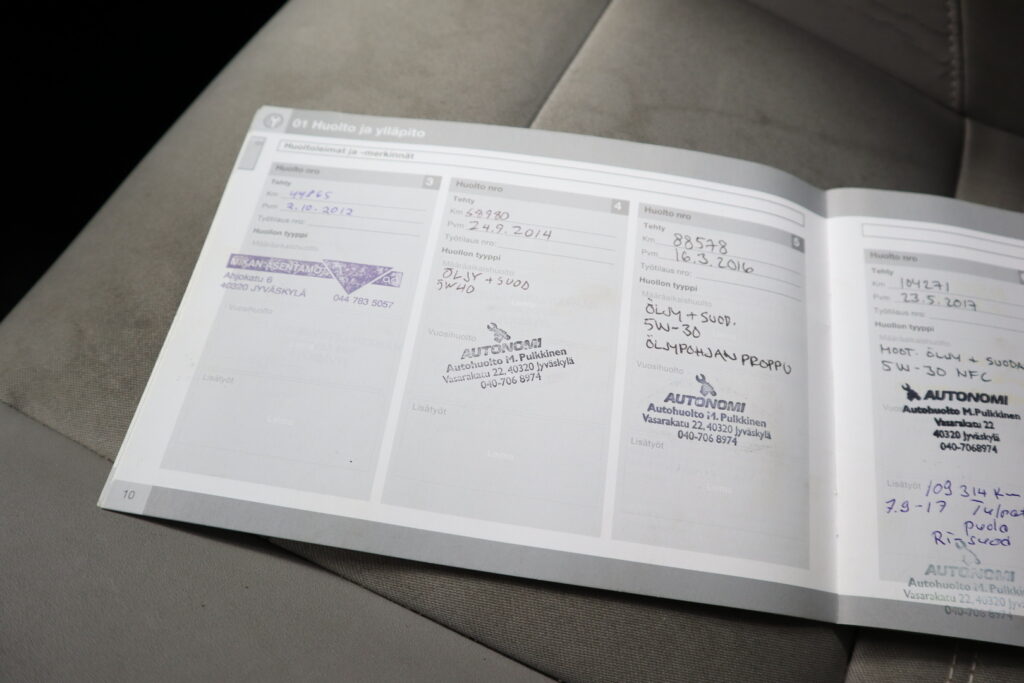 01 Huolto ja ylläpito
Huoltoleimat ja -merkinnät
Huolto nro 3
Tehty
Km 44865
Pvm 2.10.2012
Työtilaus nro:
Huollon tyyppi
Määräaikaishuolto
Ahjokatu 6
40320 JYVÄSKYLÄ
044 783 5057
Vuosihuolto
Lisätyöt
Leima
10
Huolto nro 4
Tehty
Km 68980
Pvm 24.9.2014
Työtilaus nro:
Huollon tyyppi
Määräaikaishuolto
ÖLJY + SUOD
5W40
Vuosihuolto
AUTONOMI
Autohuolto M. Pulkkinen
Vasarakatu 22, 40320 Jyväskylä
040-706 8974
Lisätyöt
Leima
Huolto nro 5
Tehty
Km 88578
Pvm 16.3.2016
Työtilaus nro:
Huollon tyyppi
Määräaikaishuolto
ÖLJY + SUOD.
5W-30
ÖLJYPOHJAN PROPPU
Vuosihuolto
AUTONOMI
Autohuolto M. Pulkkinen
Vasarakatu 22, 40320 Jyväskylä
040-706 8974
Lisätyöt
Leima
Huolto nro
Tehty
Km 104271
Pvm 23.5.2017
Työtilaus nro:
Huollon tyyppi
Määräaikaishuolto
MOOT. ÖLJY + SUODA
5W-30 NFC
AUTONOMI
Autohuolto M. Pulkkinen
Vasarakatu 22
40320 Jyväskylä
040-7068974
Lisätyöt
109 314 Km
7.9-17
puola
AUTONOMI
Autohuolto M. Pulkkinen
Vasarakatu 22, 40320 Jyväs
040-706 8974